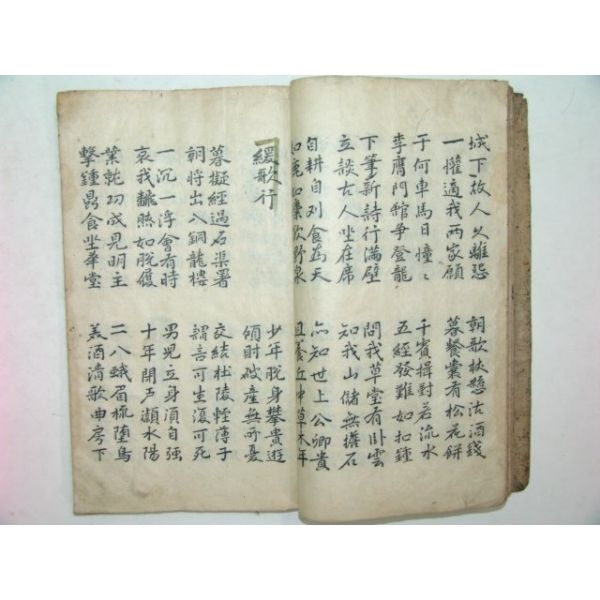 城下故人久離怨
一懽適我兩家願
朝歌扶懸沽酒錢
暮餐囊有松花餠
于何車馬日憧〻
李膺門館爭登龍
千賓揖對若流水
五經發難如扣鍾
下筆新詩行滿壁
立談古人坐在席
問我草堂有臥雲
知我山儲無擔石
自耕自刈食爲天
如鹿如麋飮野泉
亦知世上公卿貴
且養丘中草木年
緩歌行
少年脫身攀貴遊
傾財破產無所憂
暮擬經過石渠署
朝將出入銅龍樓
交結杜陵輕薄子
謂言可生復可死
一沉一浮會有時
哀我飜然如脫屐
男兒立身須自强
十年閉戶潁水陽
業就功成見明主
擊鍾鼎食坐華堂
二八蛾眉梳墮馬
美酒淸歌曲房下